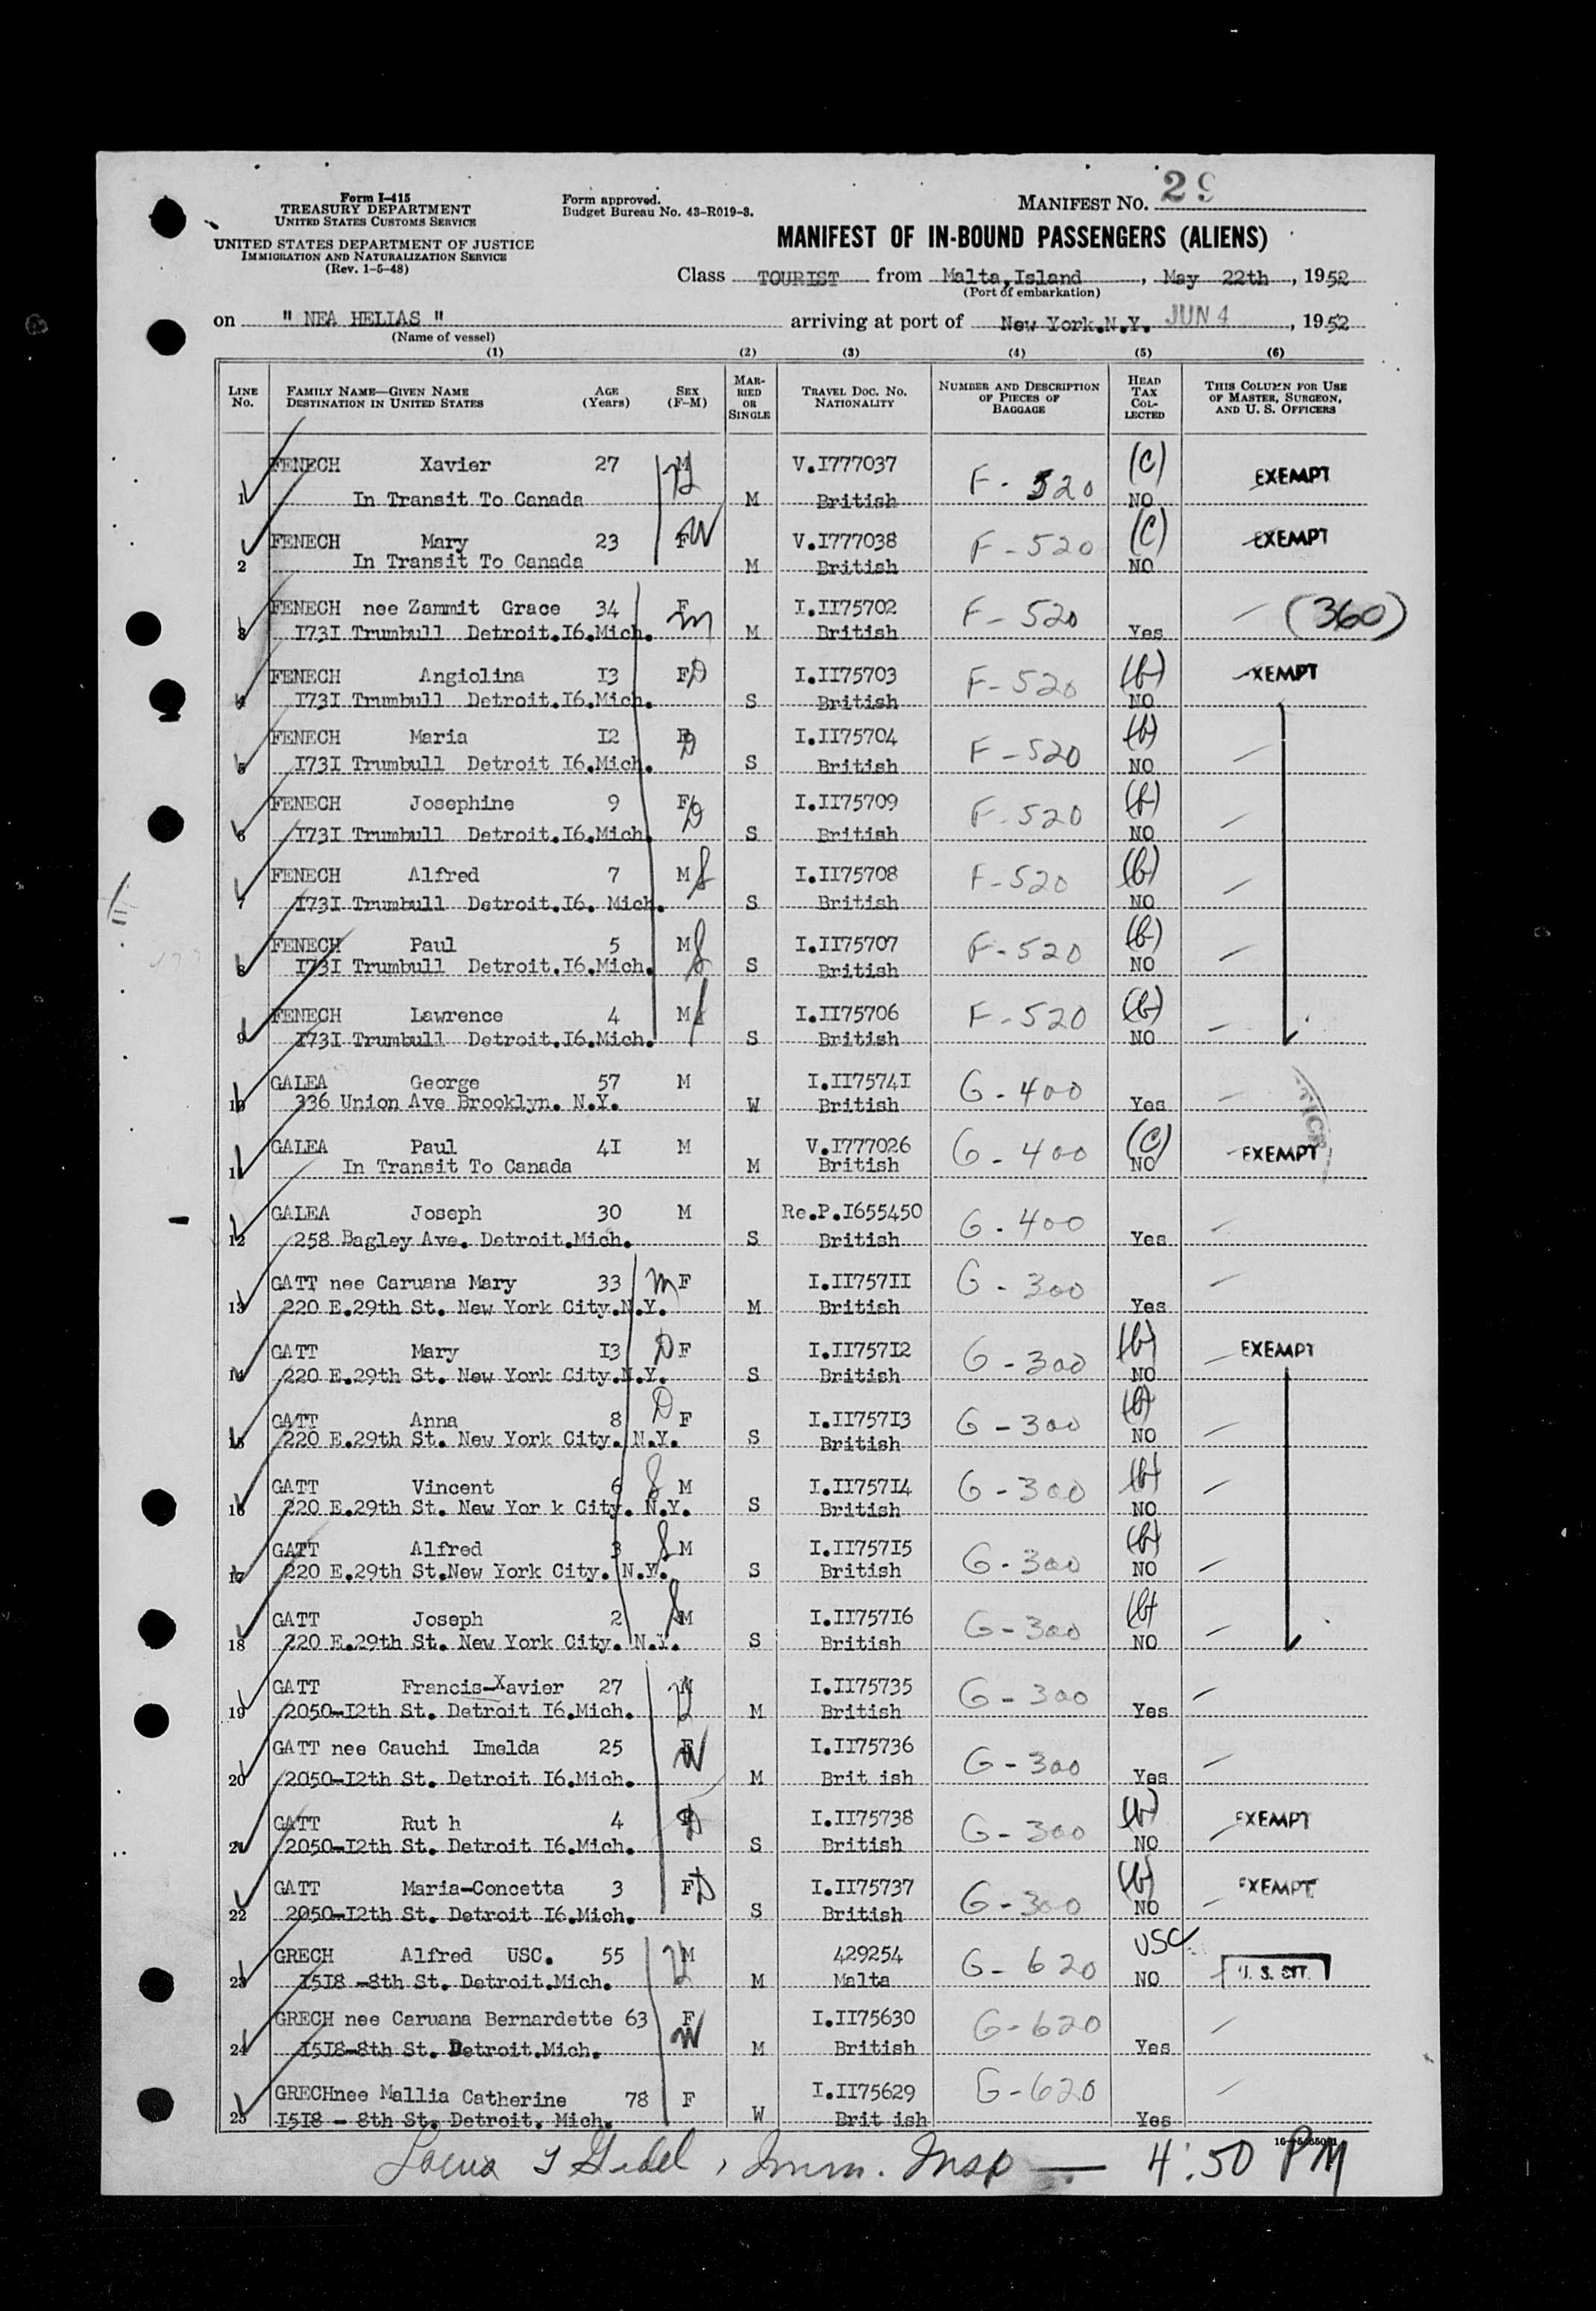 Form I-415
TREASURY DEPARTMENT
UNITED STATES CUSTOMS SERVICE
UNITED STATES DEPARTMENT OF JUSTICE
IMMIGRATION AND NATURALIZATION SERVICE
(Rev. 1-5-48)
Form approved.
Budget Bureau No. 43-R019-3.
MANIFEST No. 29
MANIFEST OF IN-BOUND PASSENGERS (ALIENS)
Class TOURIST from Malta,Island, May 22th, 1952
(Port of embarkation)
on " NEA HELIAS " arriving at port of New York.N.Y. JUN 4, 1952
(Name of vessel)
(1) (2) (3) (4) (5) (6)
LINE No. FAMILY NAME—GIVEN NAME DESTINATION IN UNITED STATES AGE (Years) SEX (F-M) MARRIED OR SINGLE TRAVEL DOC. NO. NATIONALITY NUMBER AND DESCRIPTION OF PIECES OF BAGGAGE HEAD TAX COLLECTED THIS COLUMN FOR USE OF MASTER, SURGEON, AND U. S. OFFICERS
FENECH Xavier 27 M H V.I777037 F-520 (c) EXEMPT
1 In Transit To Canada M British NO
FENECH Mary 23 F W V.I777038 F-520 (c) EXEMPT
2 In Transit To Canada M British NO
FENECH nee Zammit Grace 34 F m I.II75702 F-520 (360)
3 I73I Trumbull Detroit.I6.Mich. M British Yes
FENECH Angiolina I3 F D I.II75703 F-520 (b) EXEMPT
4 I73I Trumbull Detroit.I6.Mich. S British NO
FENECH Maria I2 F D I.II75704 F-520 (b)
5 I73I Trumbull Detroit I6.Mich. S British NO
FENECH Josephine 9 F D I.II75709 F-520 (b)
6 I73I Trumbull Detroit.I6.Mich. S British NO
FENECH Alfred 7 M S I.II75708 F-520 (b)
7 I73I Trumbull Detroit.I6. Mich. S British NO
FENECH Paul 5 M S I.II75707 F-520 (b)
8 I73I Trumbull Detroit.I6.Mich. S British NO
FENECH Lawrence 4 M S I.II75706 F-520 (b)
9 I73I Trumbull Detroit.I6.Mich. S British NO
GALEA George 57 M I.II7574I G-400
10 336 Union Ave Brooklyn. N.Y. W British Yes
GALEA Paul 4I M V.I777026 G-400 (c) EXEMPT
11 In Transit To Canada M British NO
GALEA Joseph 30 M Re.P.I655450 G-400
12 258 Bagley Ave. Detroit.Mich. S British Yes
GATT nee Caruana Mary 33 m F I.II757II G-300
13 220 E.29th St. New York City.N.Y. M British Yes
GATT Mary I3 D F I.II757I2 G-300 (b) EXEMPT
14 220 E.29th St. New York City.N.Y. S British NO
GATT Anna 8 D F I.II757I3 G-300 (b)
15 220 E.29th St. New York City. N.Y. S British NO
GATT Vincent 6 S M I.II757I4 G-300 (b)
16 220 E.29th St. New Yor k City. N.Y. S British NO
GATT Alfred 3 S M I.II757I5 G-300 (b)
17 220 E.29th St.New York City. N.Y. S British NO
GATT Joseph 2 S M I.II757I6 G-300 (b)
18 220 E.29th St. New York City. N.Y. S British NO
GATT Francis-Xavier 27 M H I.II75735 G-300
19 2050-I2th St. Detroit I6.Mich. M British Yes
GATT nee Cauchi Imelda 25 F W I.II75736 G-300
20 2050-I2th St. Detroit I6.Mich. M Brit ish Yes
GATT Rut h 4 F D I.II75738 G-300 (b) EXEMPT
21 2050-I2th St. Detroit I6.Mich. S British NO
GATT Maria-Concetta 3 F D I.II75737 G-300 (b) EXEMPT
22 2050-I2th St. Detroit I6.Mich. S British NO
GRECH Alfred USC. 55 H M 429254 G-620 USC
23 I5I8 -8th St. Detroit.Mich. M Malta NO U. S. CIT.
GRECH nee Caruana Bernardette 63 F W I.II75630 G-620
24 I5I8-8th St. Detroit.Mich. M British Yes
GRECHnee Mallia Catherine 78 F I.II75629 G-620
25 I5I8 - 8th St. Detroit. Mich. W Brit ish Yes
Imm. Insp — 4:50 PM